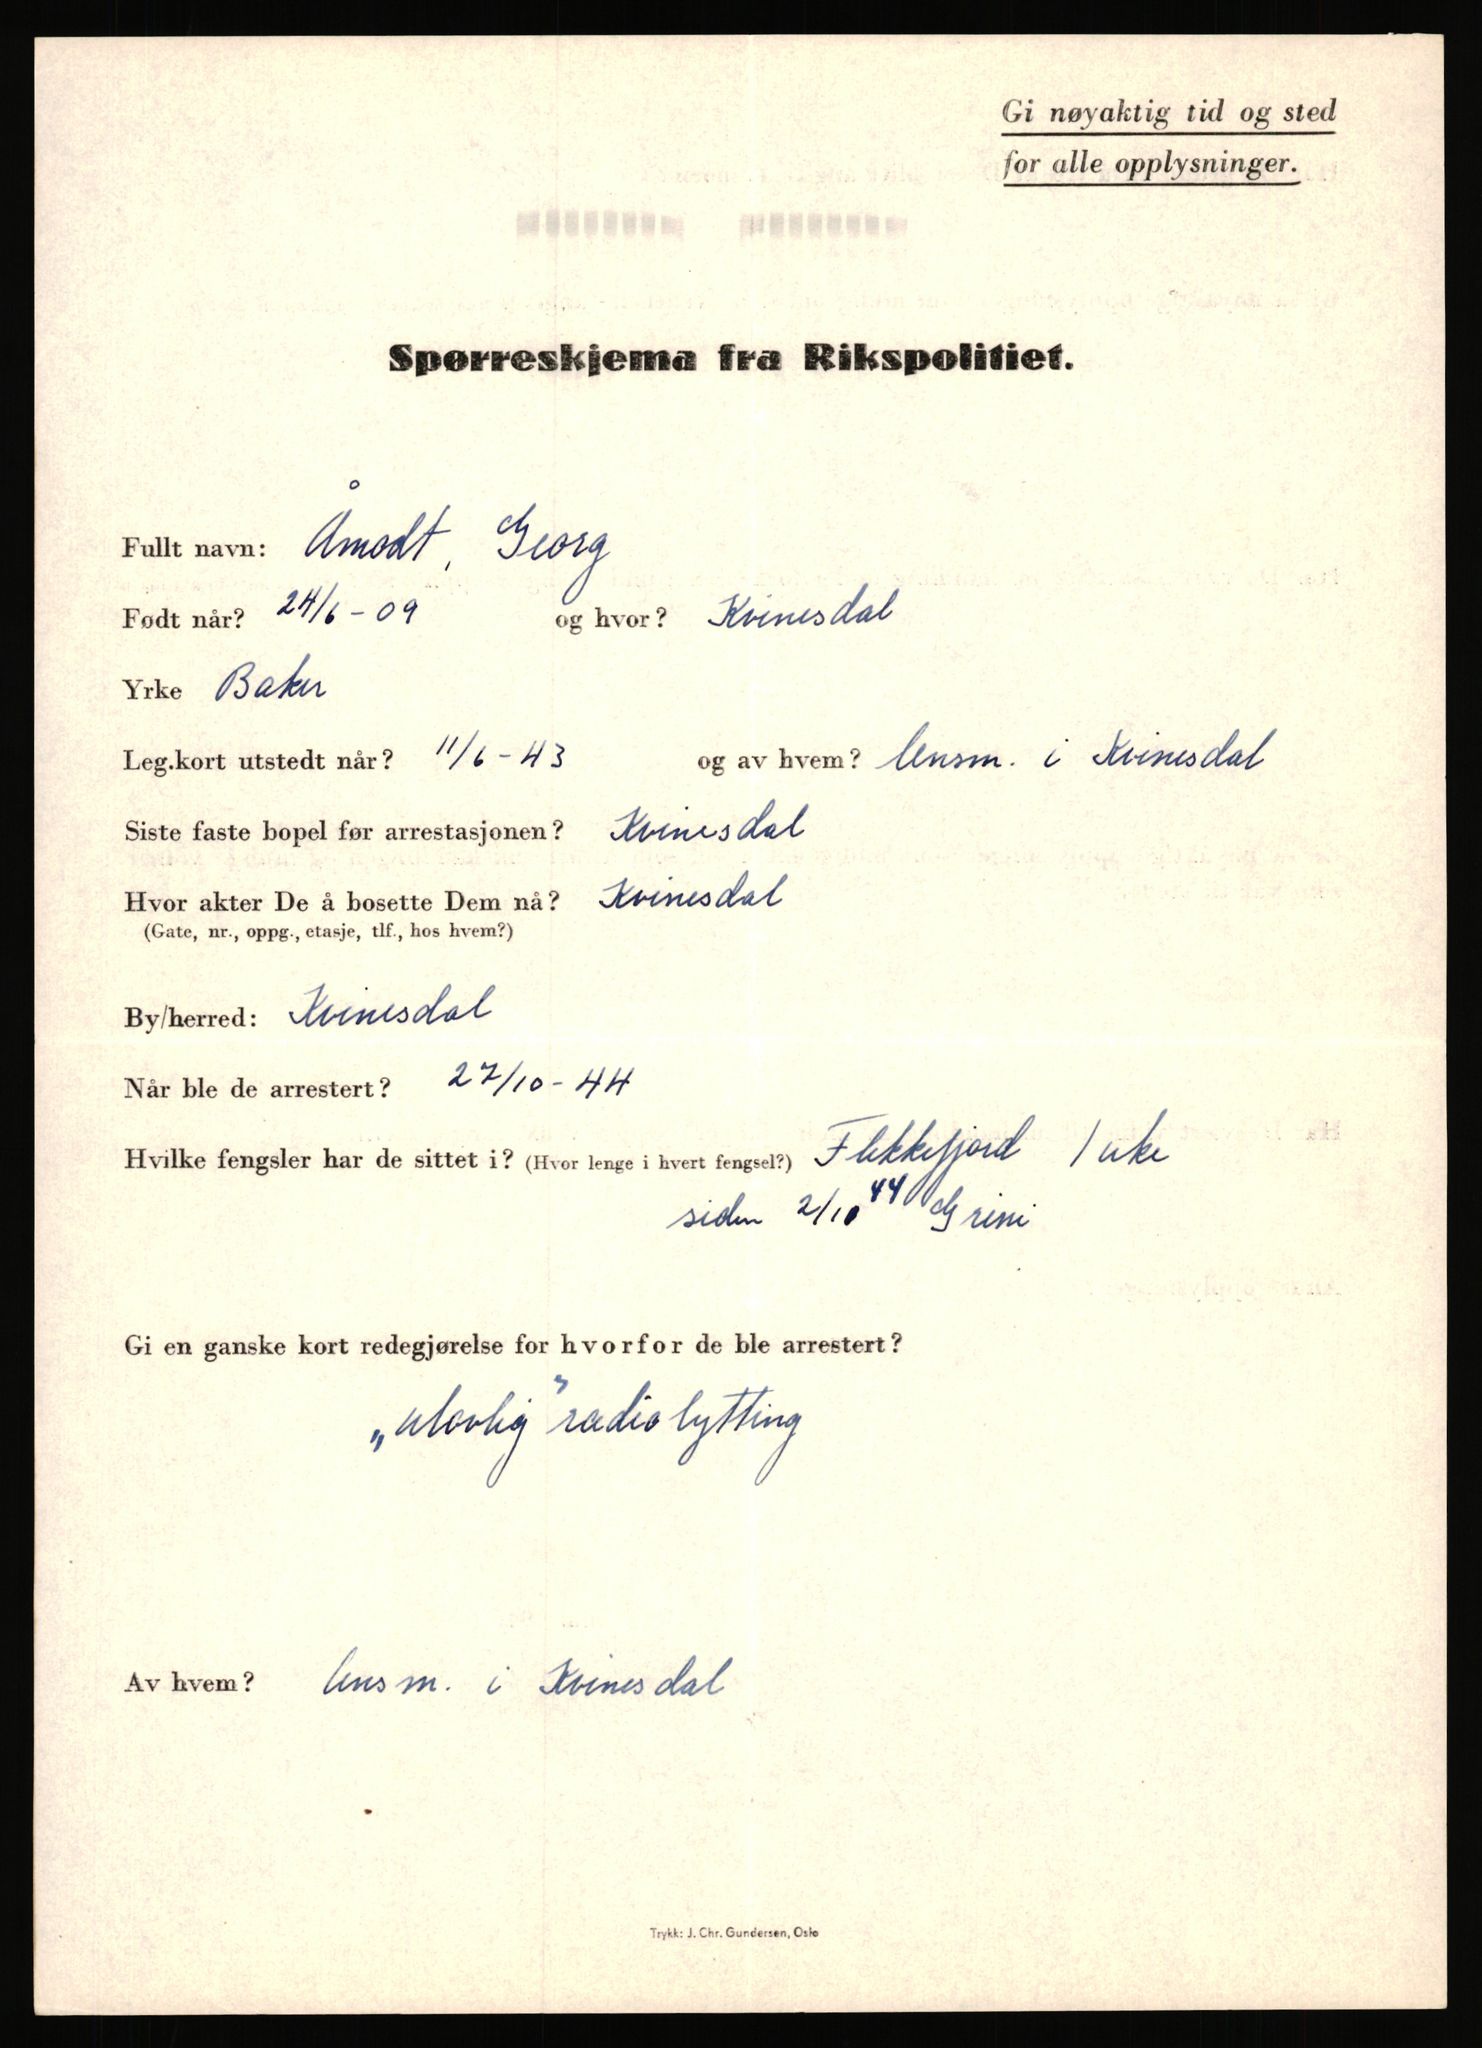 Gi nøyaktig tid og sted
for alle opplysninger.
Spørreskjema fra Rikspolitiet.
Fullt navn: Åmodt, Georg
Født når? 24/6-09 og hvor? Kvinesdal
Yrke Baker
Leg.kort utstedt når? 11/6-43 og av hvem? lensm. i Kvinesdal
Siste faste bopel før arrestasjonen? Kvinesdal
Hvor akter De å bosette Dem nå? Kvinesdal
(Gate, nr., oppg., etasje, tlf., hos hvem?)
By/herred: Kvinesdal
Når ble de arrestert? 27/10-44
Hvilke fengsler har de sittet i? (Hvor lenge i hvert fengsel?) Flekkefjord 1 uke
siden 2/10 44 Grini
Gi en ganske kort redegjørelse for hvorfor de ble arrestert?
„ulovlig” radiolytting
Av hvem? lensm. i Kvinesdal
Trykk: J. Chr. Gundersen, Oslo